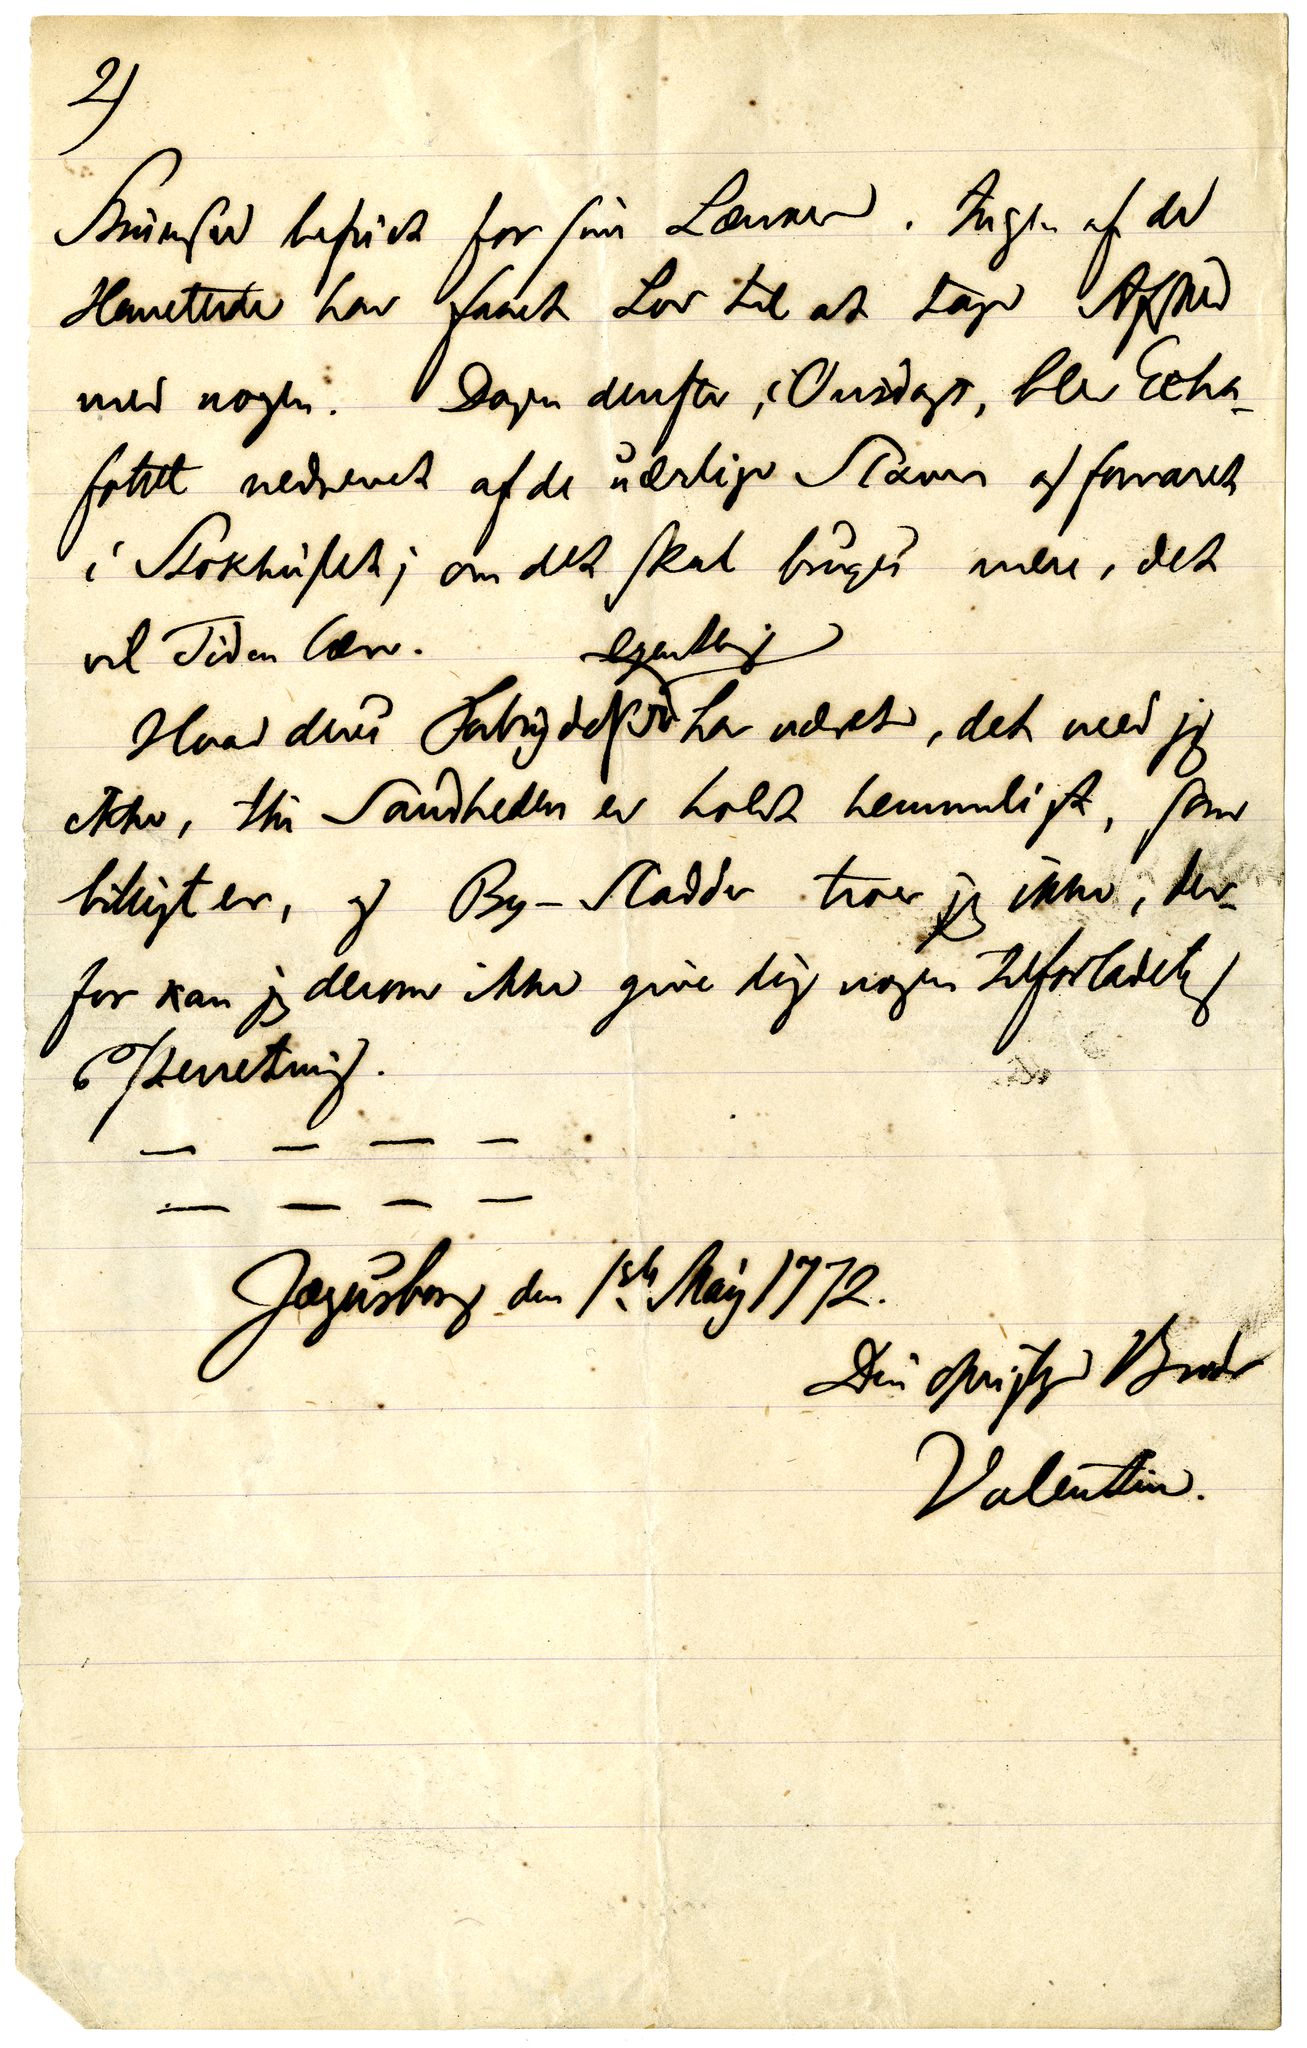 2)
befriet for sine Lænker. Ingen af de
Henrettede har faaet Lov til at tage Afsked
med nogen. Dagen derefter, i Onsdags, blev Echa-
fottet nedrevet af de uærlige Slaver og forvaret
i Stokhuset; om det skal bruges mere, det
vil Tiden lære.
egentlig
Hvad deres Forbrydelse har været, det veed jeg
ikke, thi Sandheden er holdt hemmeligt, som
billigt er, og By-Sladder troer jeg ikke, der-
for kan jeg derom ikke give dig nogen tilforladelig
Efterretning.
— — — —
— — — —
Jægersborg den 1ste May 1772.
Din oprigtige Broder
Valentin.